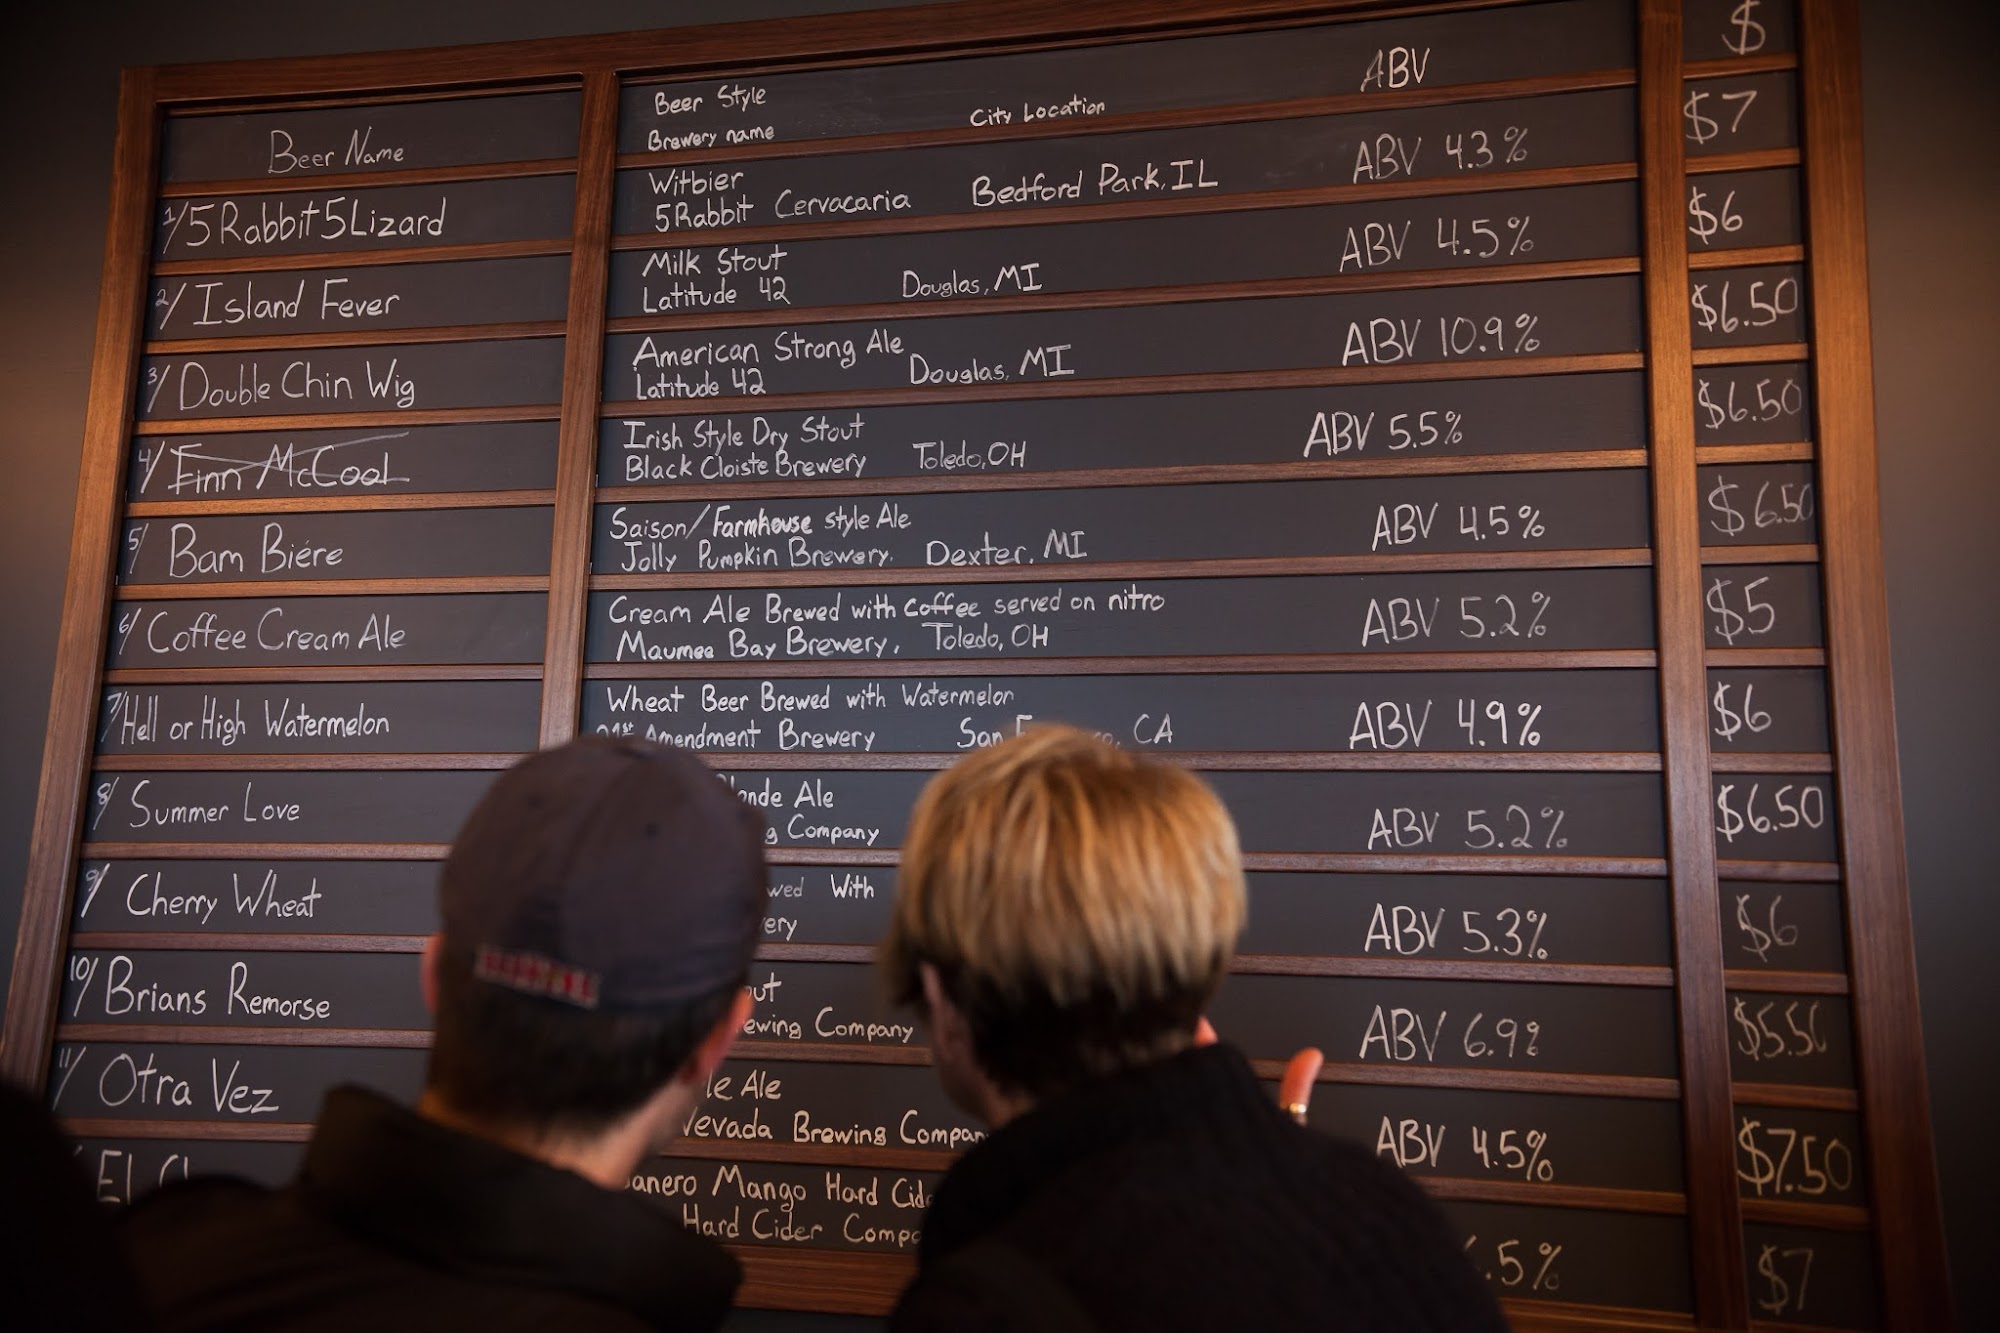 Beer Name
Beer Style
Brewery name City Location ABV $
1/ 5 Rabbit 5 Lizard
Witbier
5 Rabbit Cervacaria Bedford Park, IL ABV 4.3% $7
2/ Island Fever
Milk Stout
Latitude 42 Douglas, MI ABV 4.5% $6
3/ Double Chin Wig
American Strong Ale
Latitude 42 Douglas, MI ABV 10.9% $6.50
4/ Finn McCool
Irish Style Dry Stout
Black Cloiste Brewery Toledo, OH ABV 5.5% $6.50
5/ Bam Biére
Saison/Farmhouse style Ale
Jolly Pumpkin Brewery. Dexter, MI ABV 4.5% $6.50
6/ Coffee Cream Ale
Cream Ale Brewed with coffee served on nitro
Maumee Bay Brewery, Toledo, OH ABV 5.2% $5
7/ Hell or High Watermelon
Wheat Beer Brewed with Watermelon
Amendment Brewery San CA ABV 4.9% $6
8/ Summer Love
Ale
Company ABV 5.2% $6.50
9/ Cherry Wheat
With
ABV 5.3% $6
10/ Brians Remorse
Company ABV 6.9% $5.50
11/ Otra Vez
Ale
Nevada Brewing Company ABV 4.5% $7.50
El
Mango Hard
Hard Cider $7